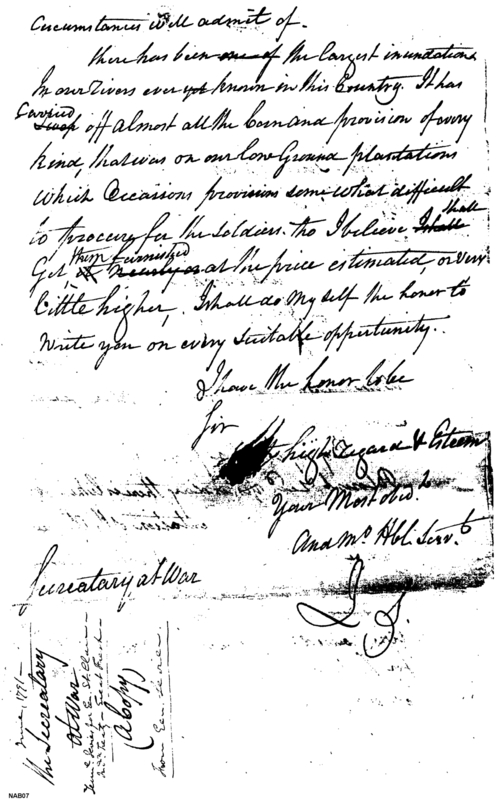 Circumstances will admit of.
there has been one of the largest inundations
In our rivers ever yet known in this Country. It has
Carried
Swep off almost all the Corn and provision of every
kind, that was on our low Ground plantations
which Occasions provisions some what difficult
to procure for the soldiers. tho I believe I shall shall
Get it them furnished nearly or at the price estimated, or very
little higher, I shall do my self the honor to
Write you on every suitable opportunity.
I have the honor to be
Sir
high regard & Esteem
Your Most obd.
And Mo Hbl. Servt
J S.
Secreatary at War
June, 1791
The Secreatary
at War
(a Copy)
from Gen
NAB07